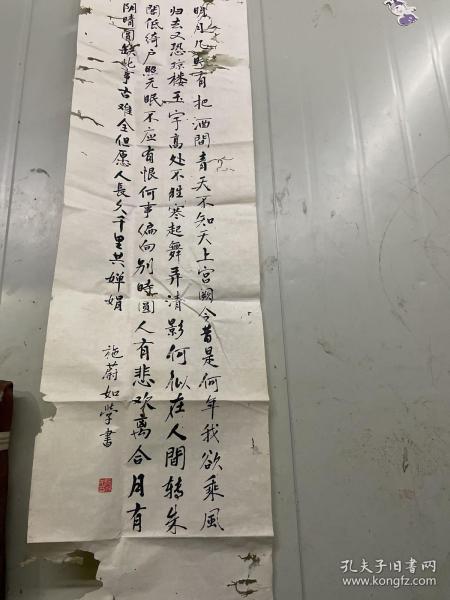 明月几时有把酒问青天不知天上宫阙今昔是何年我欲乘风
归去又恐琼楼玉宇高处不胜寒起舞弄清影何似在人間转朱
阁低绮户照无眠不应有恨何事偏向别時圆人有悲欢离合月有
阴晴圆缺此事古难全但愿人長久千里共婵娟
施蔚如学書
孔夫子旧书网
www.kongfz.com